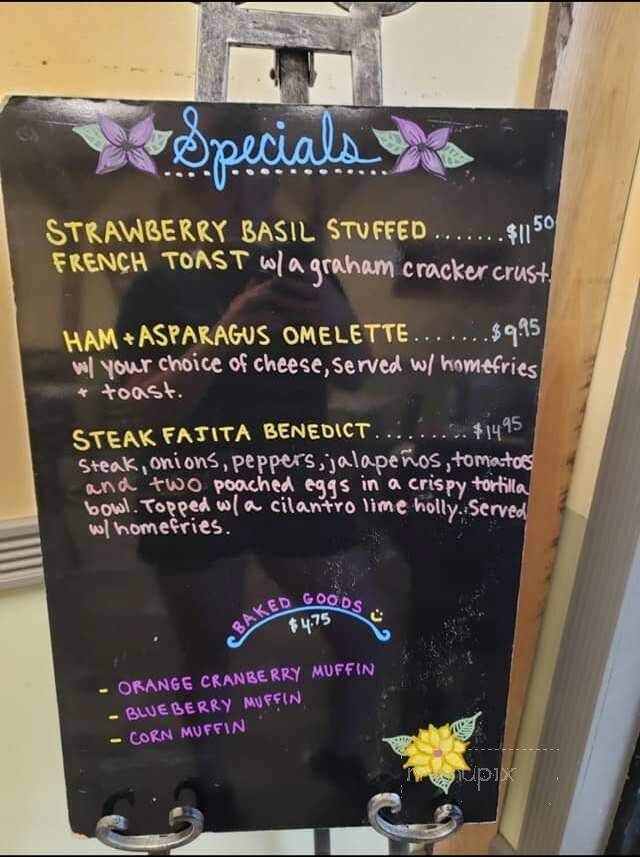 Specials
STRAWBERRY BASIL STUFFED ....... $11 50
FRENCH TOAST w/a graham cracker crust.
HAM + ASPARAGUS OMELETTE ....... $9.95
w/ your choice of cheese, served w/ homefries
+ toast.
STEAK FAJITA BENEDICT ......... $14 95
Steak, onions, peppers, jalapeños, tomatoes
and two poached eggs in a crispy tortilla
bowl. Topped w/a cilantro lime holly. Served
w/ homefries.
BAKED GOODS
$4.75
- ORANGE CRANBERRY MUFFIN
- BLUEBERRY MUFFIN
- CORN MUFFIN
menupix